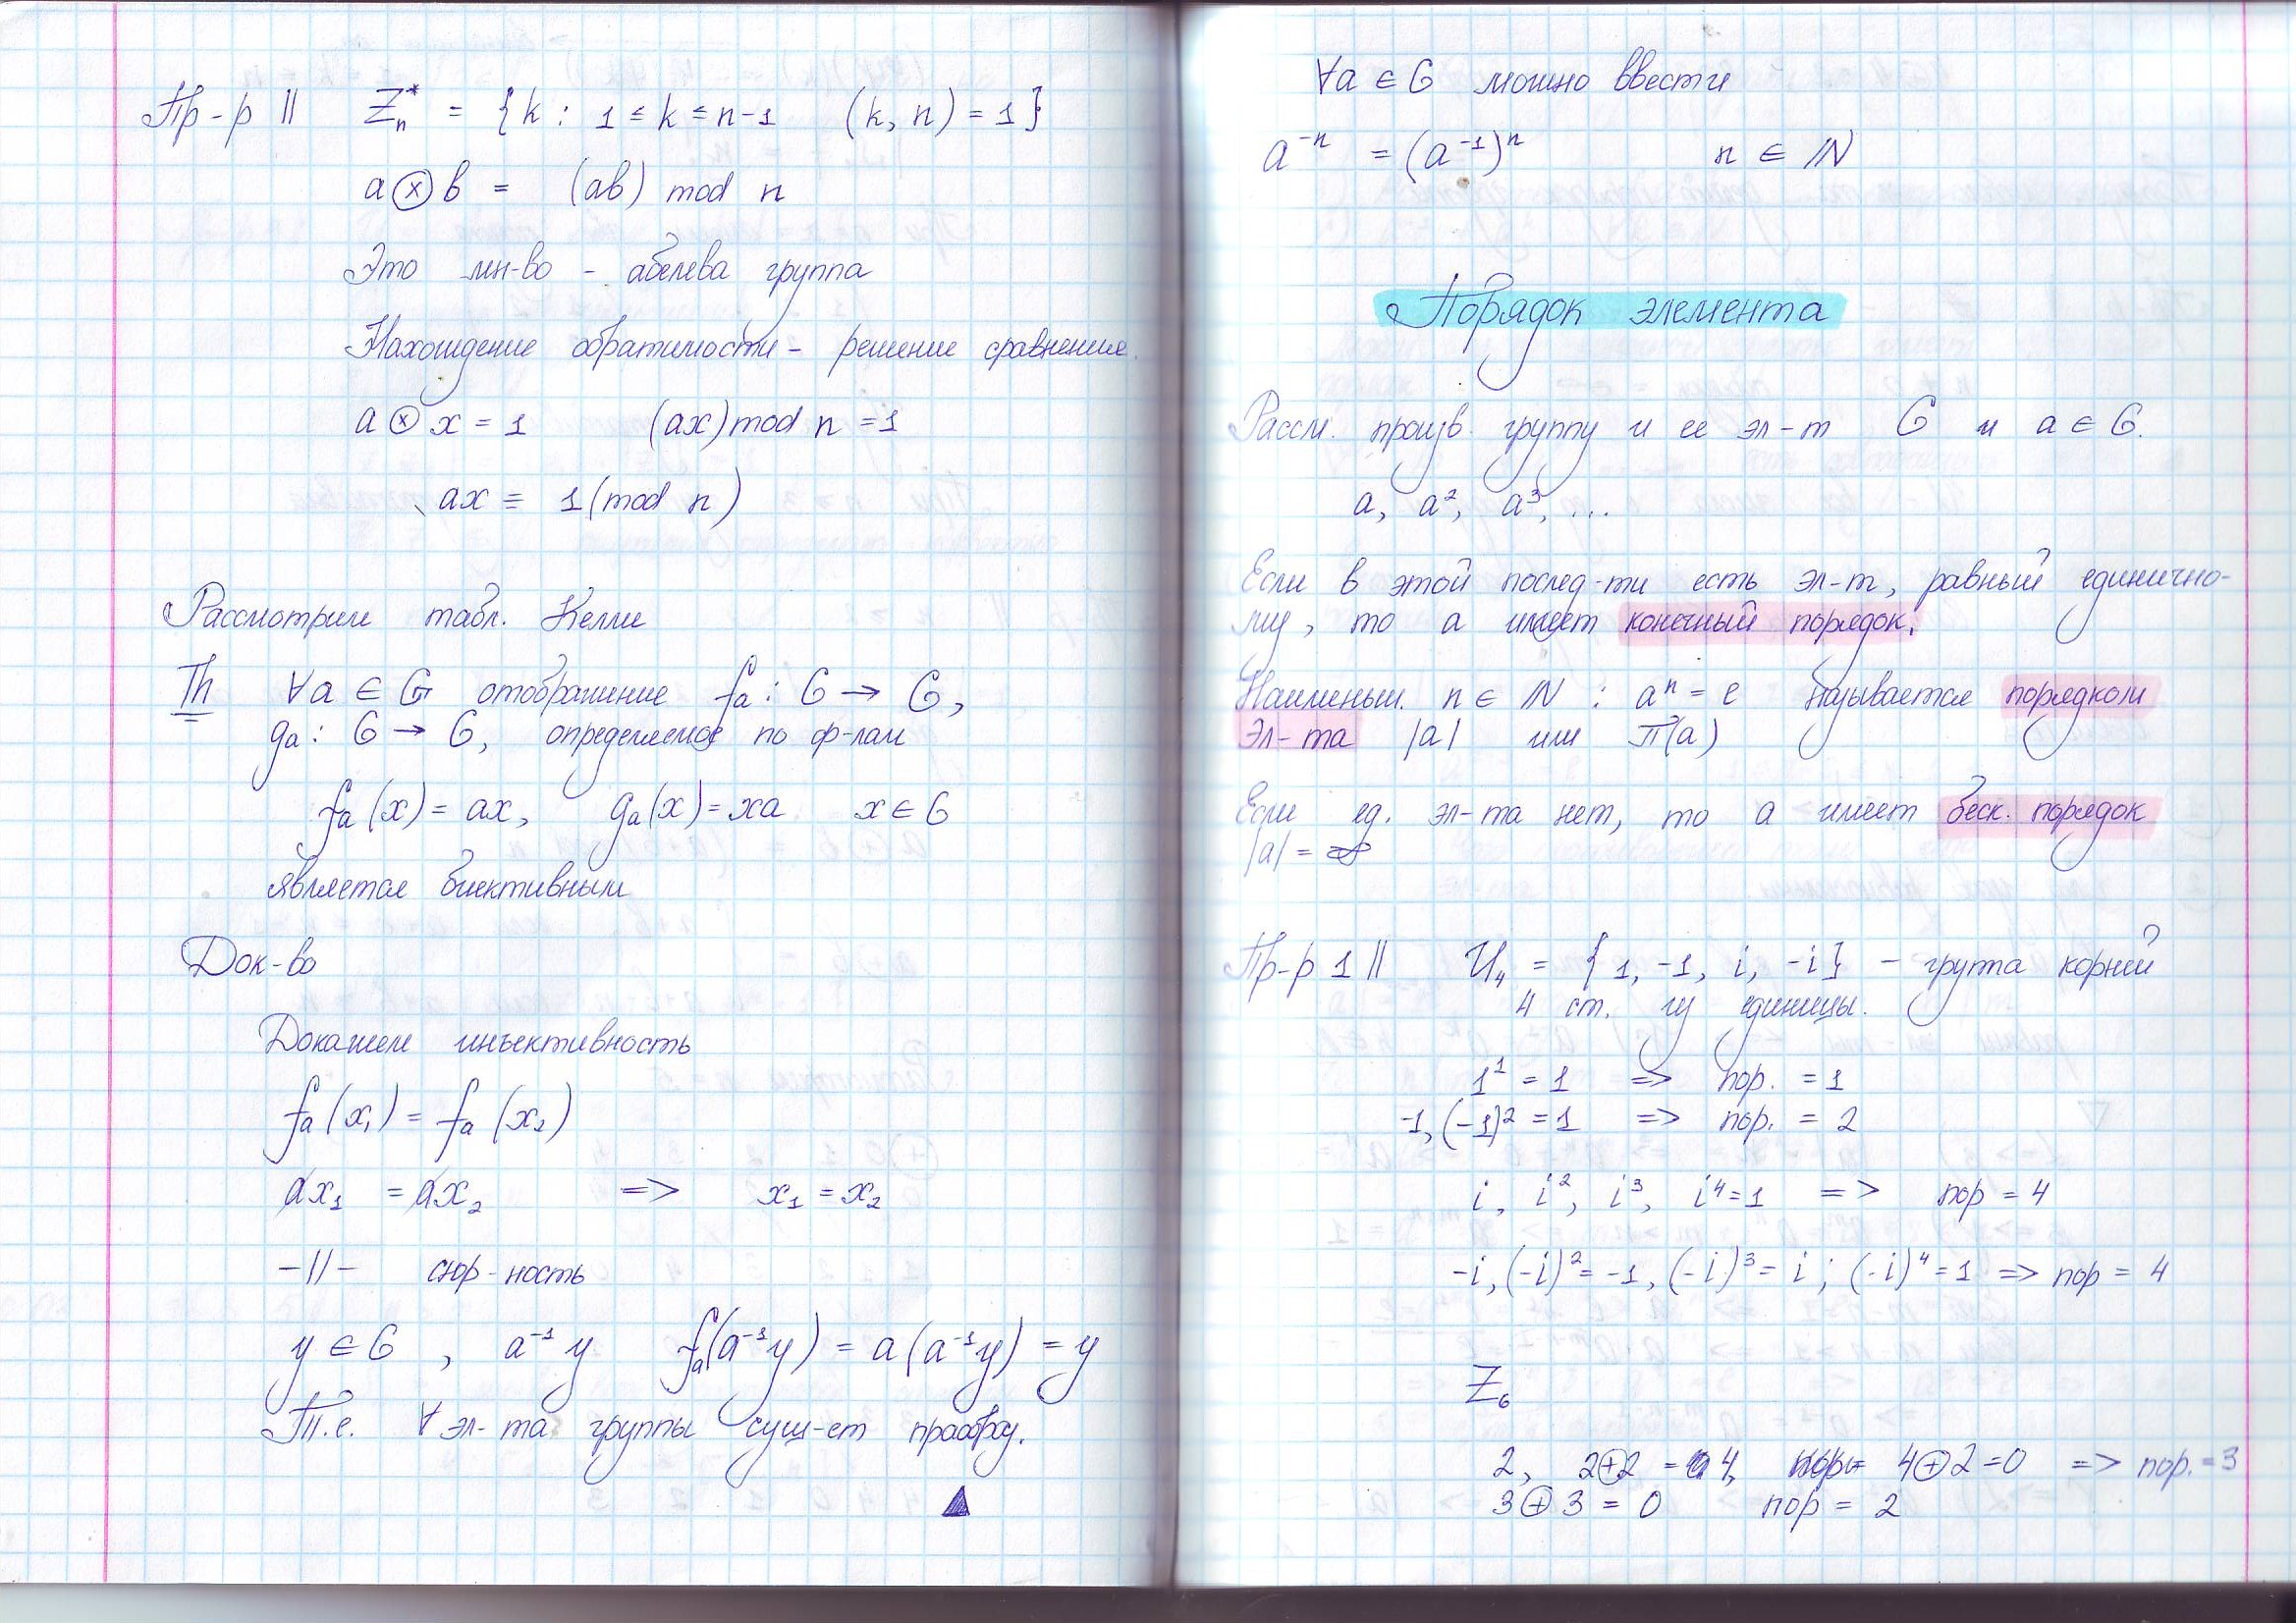 Пр-р || Zₙ* = {k : 1 ≤ k ≤ n-1 (k, n) = 1}
a ⊗ b = (ab) mod n
Это мн-во - абелева группа
Нахождение обратимости - решение сравнения.
a ⊗ x = 1 (ax) mod n = 1
ax ≡ 1 (mod n)
Рассмотрим табл. Келли
Th ∀a ∈ G отображение fₐ : G → G,
gₐ : G → G, определяемое по ф-лам
fₐ(x) = ax, gₐ(x) = xa x ∈ G
является биективным
Док-во
Докажем инъективность
fₐ(x₁) = fₐ(x₂)
ax₁ = ax₂ => x₁ = x₂
-||- сюр-ность
y ∈ G , a⁻¹y fₐ(a⁻¹y) = a(a⁻¹y) = y
Т.е. ∀ эл-та группы сущ-ет прообраз.
∀a ∈ G можно ввести
a⁻ⁿ = (a⁻¹)ⁿ n ∈ ℕ
Порядок элемента
Рассм. произв. группу и ее эл-т G и a ∈ G.
a, a², a³, ...
Если в этой послед-ти есть эл-т, равный единично-
му, то a имеет конечный порядок.
Наименьш. n ∈ ℕ : aⁿ = e называется порядком
эл-та |a| или П(a)
Если ед. эл-та нет, то a имеет беск. порядок
|a| = ∞
Пр-р 1 || U₄ = {1, -1, i, -i} - группа корней
4 ст. из единицы.
1¹ = 1 => пор. = 1
-1, (-1)² = 1 => пор. = 2
i, i², i³, i⁴ = 1 => пор = 4
-i, (-i)² = -1, (-i)³ = i ; (-i)⁴ = 1 => пор = 4
Z₆
2, 2⊕2 = 4, 4⊕2 = 0 => пор. = 3
3⊕3 = 0 пор = 2